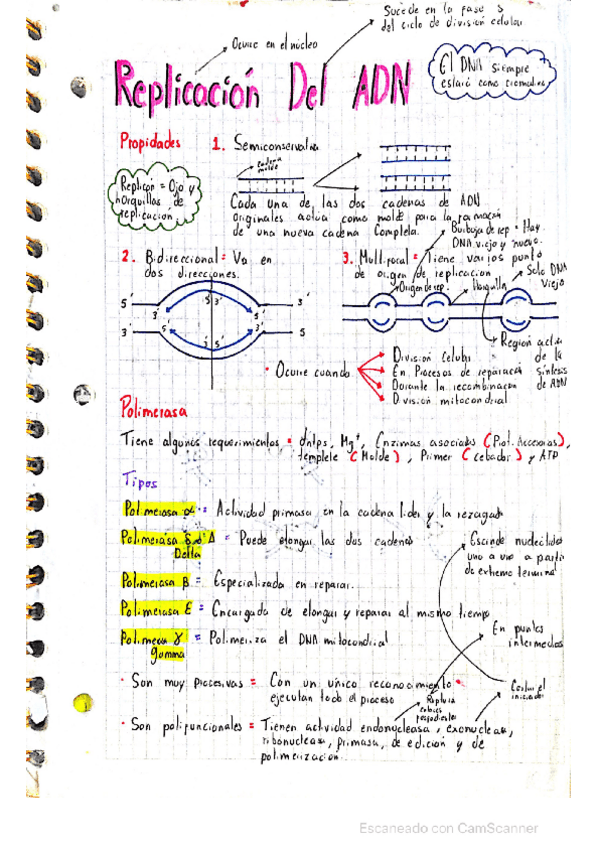 Sucede en la fase S
del ciclo de división celular
Ocurre en el núcleo
El DNA siempre
estará como cromatina
Replicación Del ADN
Propidades
1. Semiconservativa
cadena
molde
Replicón = Ojo y
horquillas de
replicación
Cada una de las dos cadenas de ADN
originales actúa como molde para la formación
de una nueva cadena completa.
Burbuja de rep = Hay
DNA viejo y nuevo.
2. Bidireccional = Va en
dos direcciones.
3. Multifocal = Tiene varios punto
de origen de replicación
Solo DNA
viejo
Origen de rep.
Horquilla
5' 3' 5' 3' 5'
3' 3' 5' 5' 5
Región activa
de la
síntesis
de ADN
• Ocurre cuando
División Celular
En Procesos de reparación
Durante la recombinación
División mitocondrial
Polimerasa
Tiene algunos requerimientos = dntps, Mg+, Enzimas asociadas (Prot. Accesorias),
templete (Molde), Primer (cebador) y ATP
Tipos
Polimerasa α = Actividad primasa en la cadena lider y la rezagada
Polimerasa δ ó Δ = Puede elongar las dos cadenas
Delta
Escinde nucleótidos
uno a uno a partir
de extremo terminal
Polimerasa β = Especializada en reparar.
Polimerasa ε = Encargada de elongar y reparar al mismo tiempo
Polimerasa γ = Polimeriza el DNA mitocondrial
gamma
En puntos
intermedios
• Son muy procesivas = Con un único reconocimiento
ejecutan todo el proceso
Ruptura
enlaces
Cortar el
iniciador
• Son polifuncionales = Tienen actividad endonucleasa, exonucleasa,
ribonucleasa, primasa, de edición y de
polimerización.
Escaneado con CamScanner